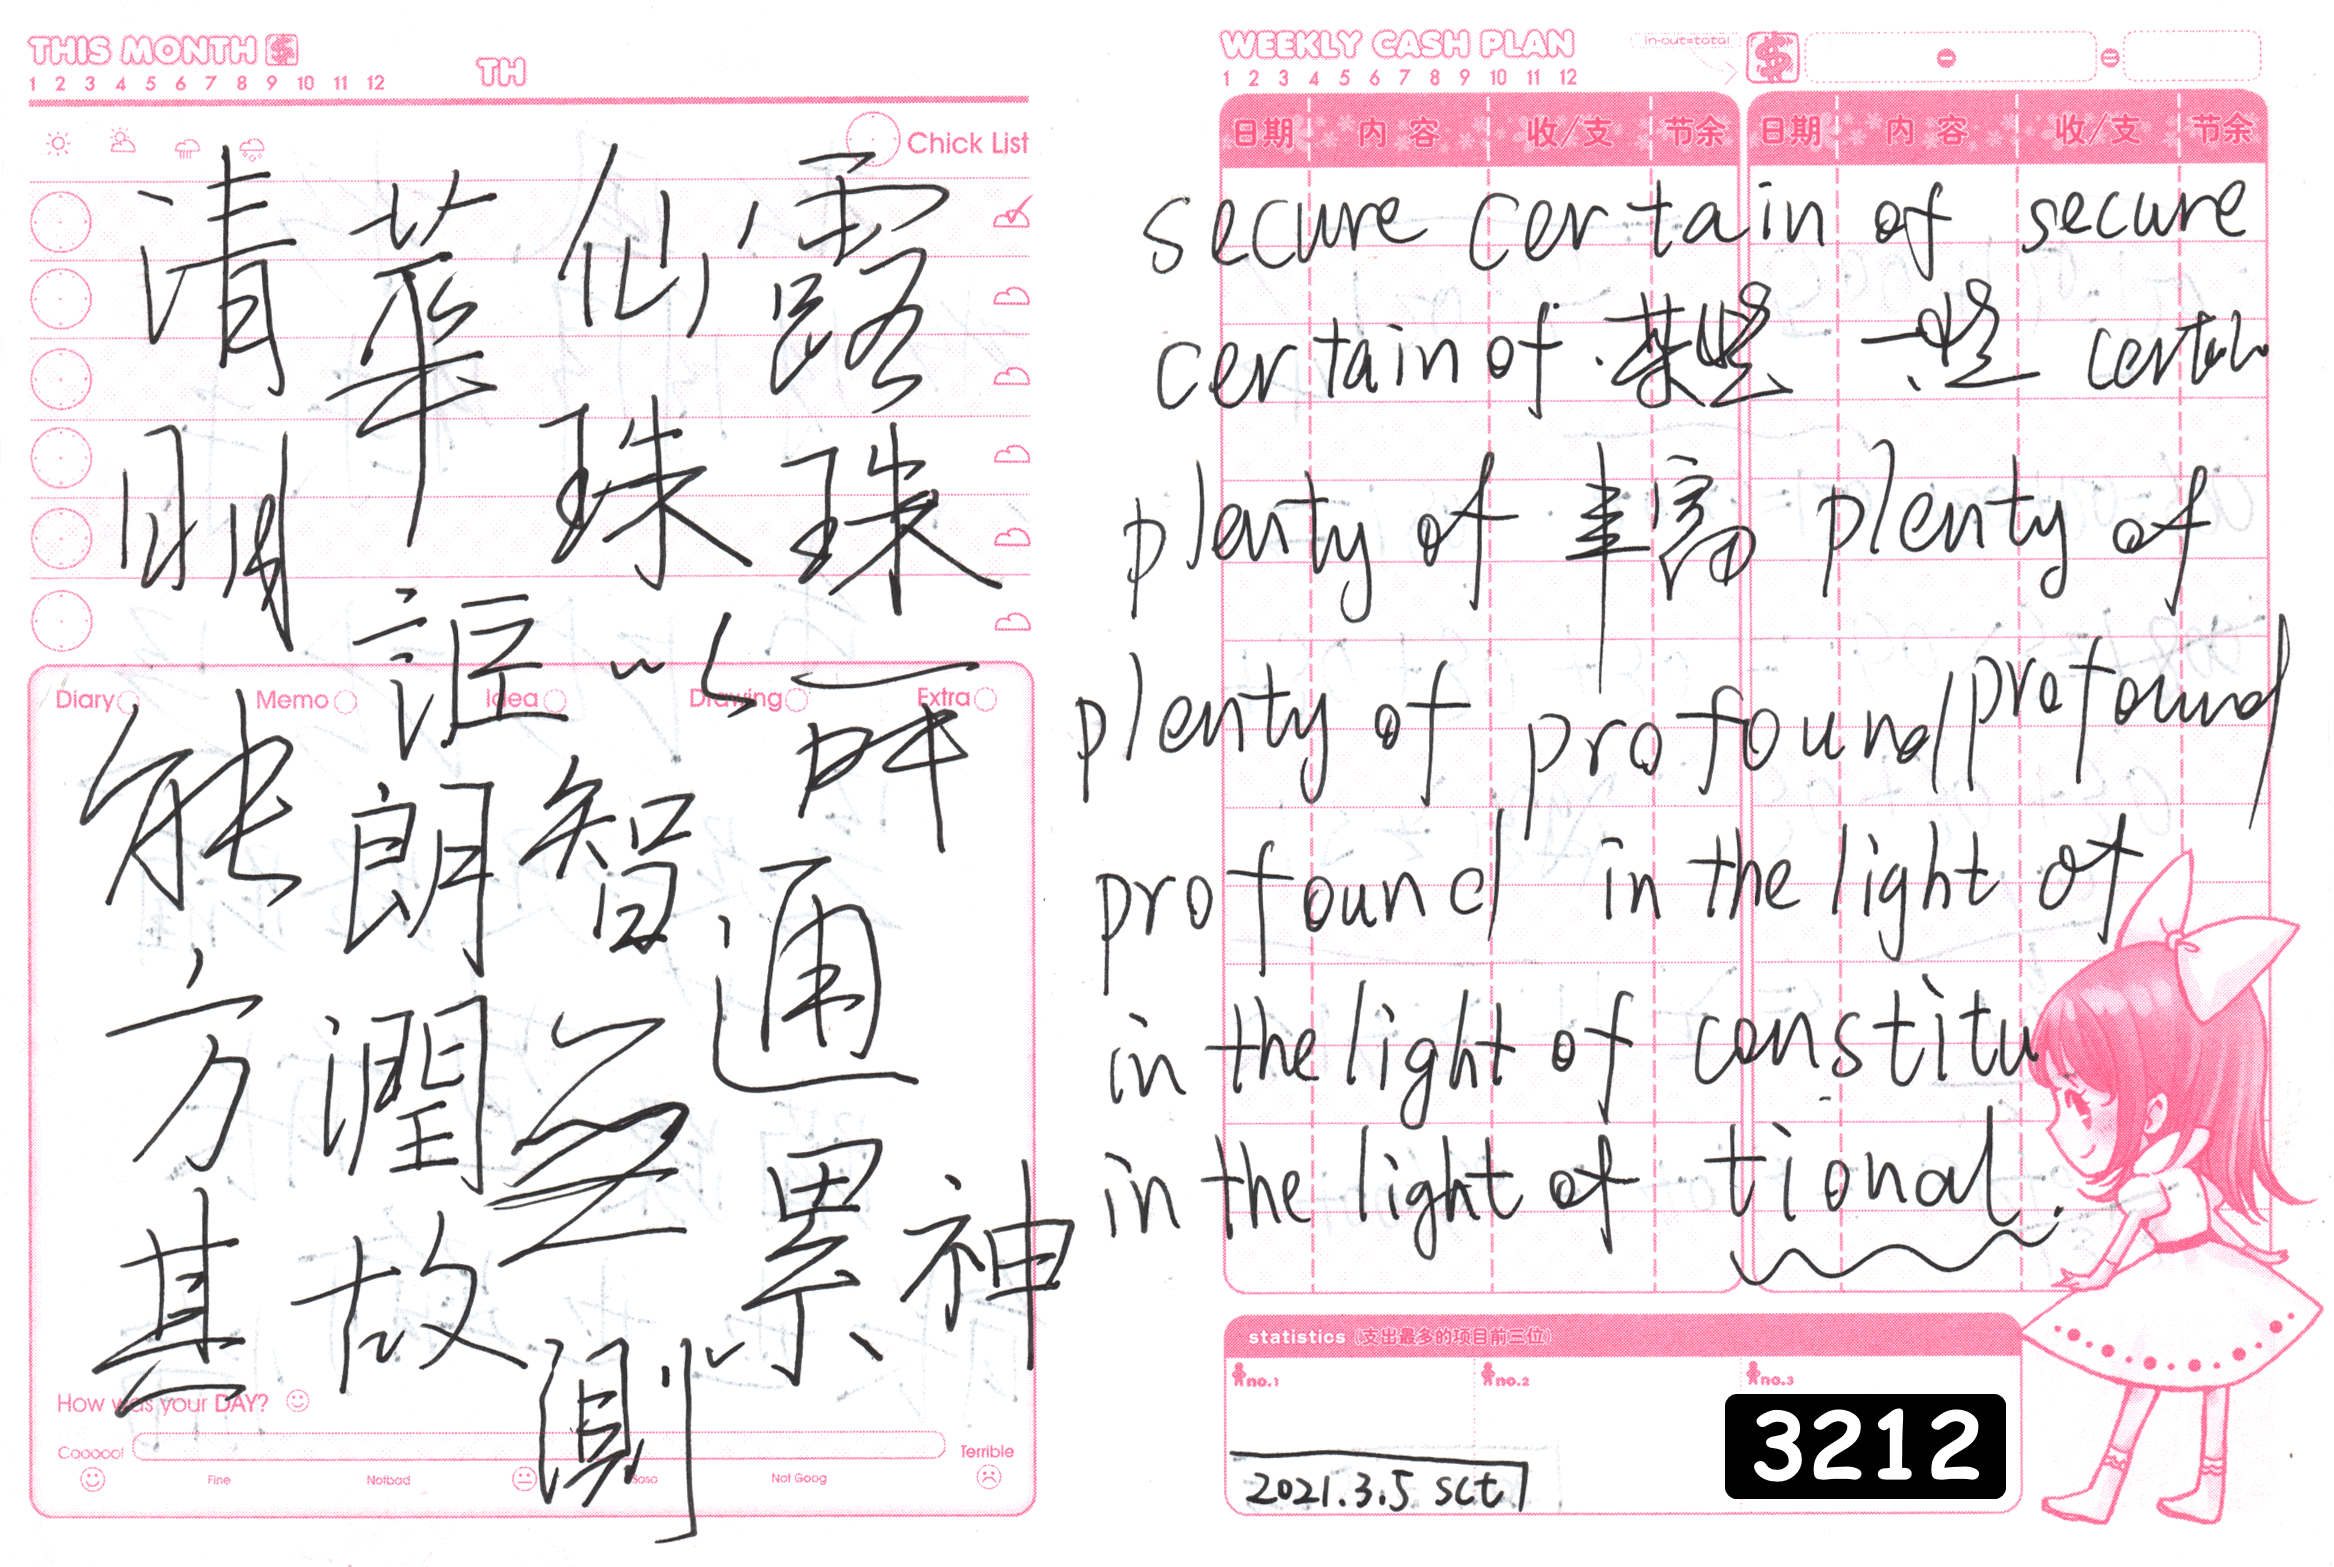 THIS MONTH $
1 2 3 4 5 6 7 8 9 10 11 12
TH
Chick List
清華仙露
明珠珠
詎
能朗智
方潤無通
其故累神
測
Diary Memo Idea Drawing Extra
How was your DAY?
Cooooo! Terrible
Fine Notbad Soso Not Goog
WEEKLY CASH PLAN
1 2 3 4 5 6 7 8 9 10 11 12
in-out=total
$
日期 内容 收/支 节余 日期 内容 收/支 节余
secure certain of secure
certain of
plenty of 丰富 plenty of
plenty of profound profound
profound in the light of
in the light of constitu
in the light of tional.
statistics (支出最多的项目前三位)
no.1 no.2 no.3
2021.3.5 sct
3212